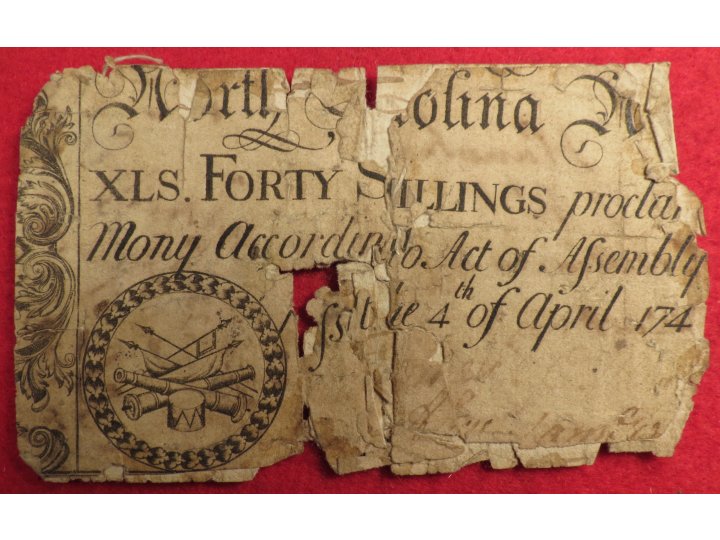 North Carolina N
XLS. FORTY SHILLINGS proclam
Mony According to Act of Assembly
ssd the 4th of April 174